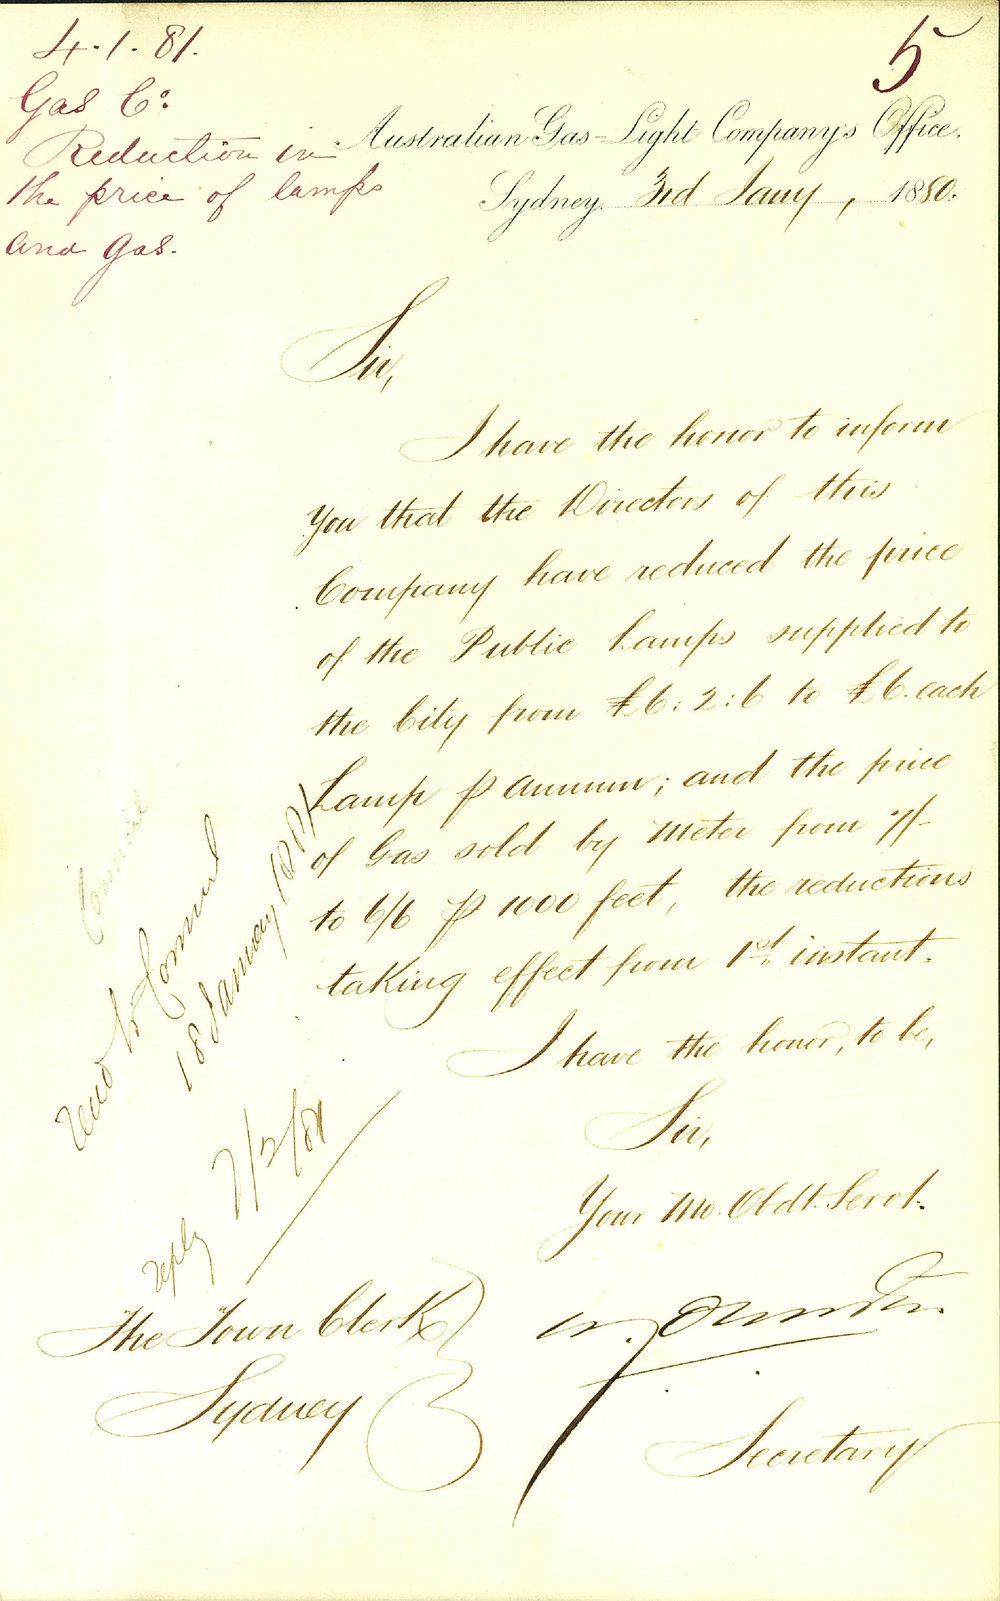 4.1.81.
5
Gas Co:
Reduction in
the price of lamps
and gas.
Australian Gas-Light Company's Office.
Sydney 3rd Jany, 1880.
Sir,
I have the honor to inform
you that the Directors of this
Company have reduced the price
of the Public Lamps supplied to
the City from £6:2:6 to £6. each
Lamp ⅌ Annum; and the price
of Gas sold by Meter from 7/-
to 6/6 ⅌ 1000 feet, the reductions
taking effect from 1st instant.
I have the honor, to be,
Sir,
Your Mo. Obdt. Servt.
Secretary
The Town Clerk
Sydney
Council
Read to Council
18 January 1881
reply 7/2/81